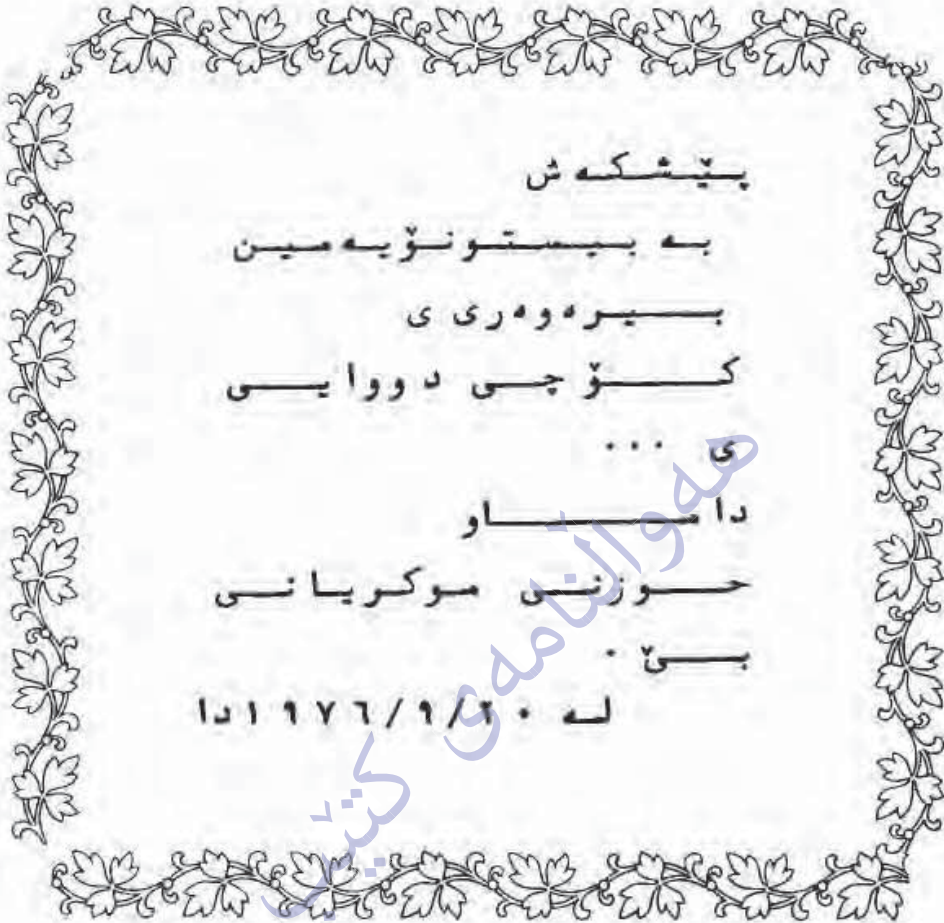 پێشکەش
بە بیستونۆیەمین
بیرەوەری ی
کۆچی دووایی
ی ...
داماو
حوزنی موکریانی
بێ .
لە ٢٠/٩/١٩٧٦دا
هەواڵنامەی کتێب